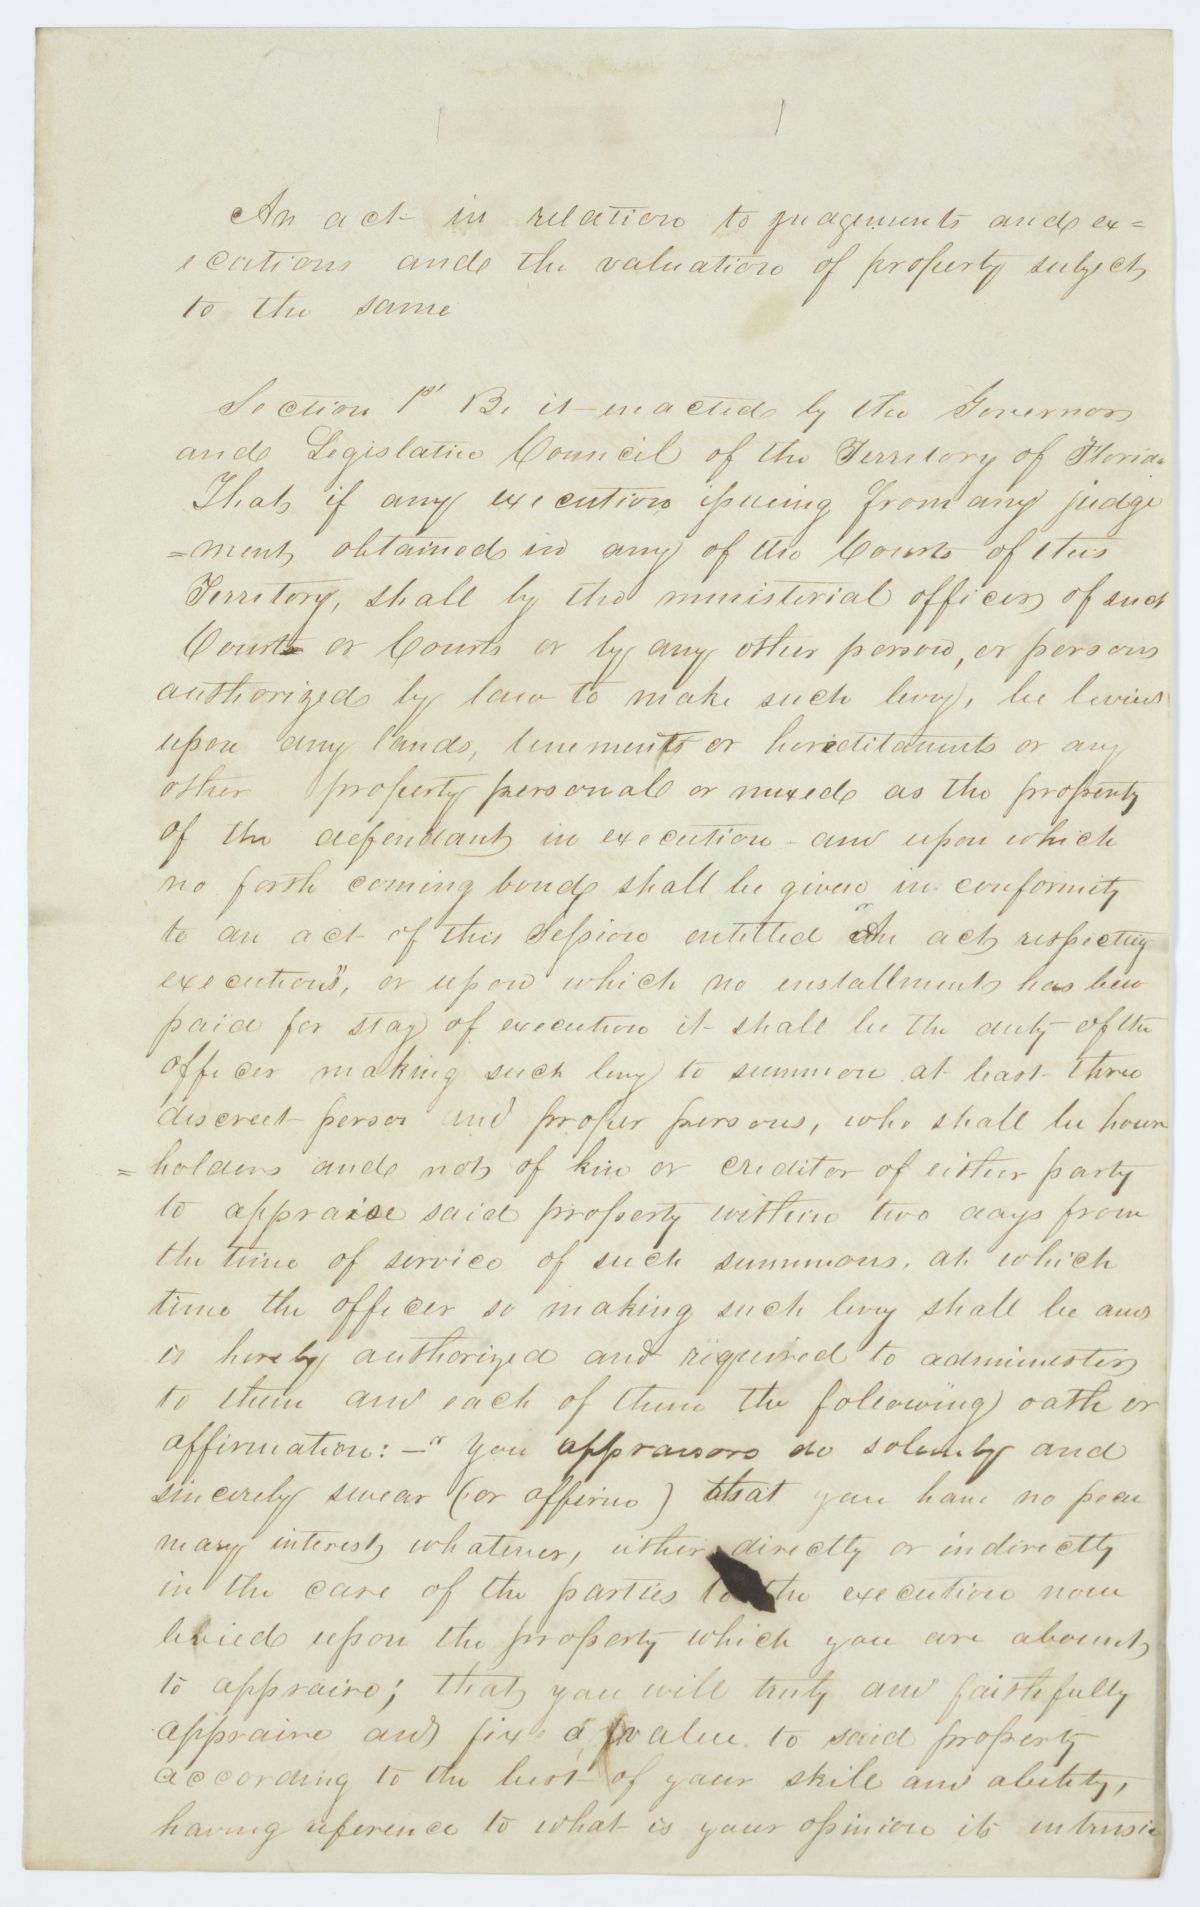 An act in relation to judgements and ex=
ecutions and the valuation of property subject
to the same
Section 1st Be it enacted by the Governor
and Legislative Council of the Territory of Florida
That if any execution issuing from any judge
=ment obtained in any of the Courts of this
Territory, shall by the ministerial officer of such
Court or Courts or by any other person, or persons
authorized by law to make such levy, be levied
upon any lands, tenements or hereditaments or any
other property personal or mixed as the property
of the defendant in execution and upon which
no forth coming bond shall be given in conformity
to an act of this Session entitled "An act respecting
executions", or upon which no installment has been
paid for stay of execution it shall be the duty of the
officer making such levy to summon at least three
discreet person and proper persons, who shall be house
=holders and not of kin or creditor of either party
to appraise said property within two days from
the time of service of such summons, at which
time the officer so making such levy shall be and
is hereby authorized and required to administer
to them and each of them the following oath or
affirmation:—"You appraisors do solemly and
sincerely swear (or affirm) that you have no pecu
niary interest whatever, either directly or indirectly
in the case of the parties to the execution now
levied upon the property which you are about
to appraise; that you will truly and faithfully
appraise and fix a value to said property
according to the best of your skill and ability,
having reference to what is your opinion its intrinsic